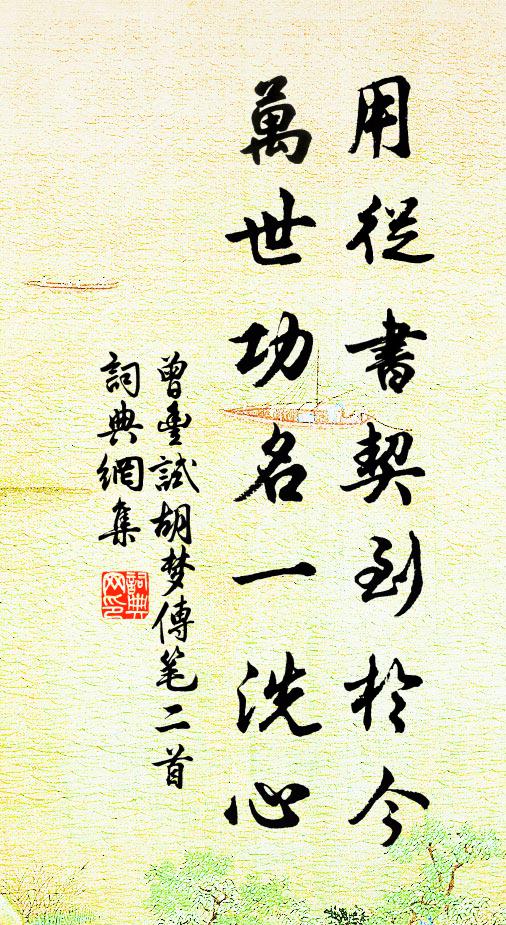 用從書契到於今
萬世功名一洗心
曾豐試胡梦傳笔二首
詞典網集
詞典
网印